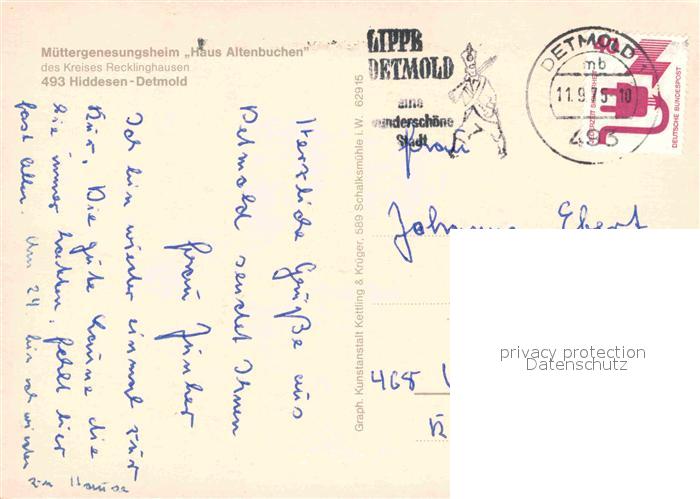 Müttergenesungsheim „Haus Altenbuchen"
des Kreises Recklinghausen
493 Hiddesen-Detmold
LIPPE
DETMOLD
eine
wunderschöne
Stadt
DETMOLD
mb
11.9.75-10
493
DEUTSCHE BUNDESPOST
Graph. Kunstanstalt Kettling & Krüger, 589 Schalksmühle i.W. 62915
Herzliche Grüße aus
Detmold sendet Ihnen
Frau Jünher
Ich bin wieder einmal zur
Kur. Die gute Laune die
Sie immer hatten, fehlt hier
fast allen. Am 24. bin ich wieder
zu Hause
Frau
Johanna Ebert
468
privacy protection
Datenschutz